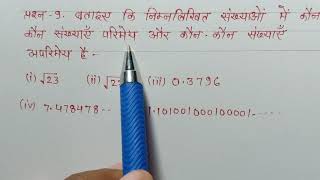 प्रश्न-9. बताइए कि निम्नलिखित संख्याओं में कौन
कौन संख्याएँ परिमेय और कौन-कौन संख्याएँ
अपरिमेय है -
(i) √23 (ii) √2 (iii) 0.3796
(iv) 7.478478-- 1.101001000100001.....